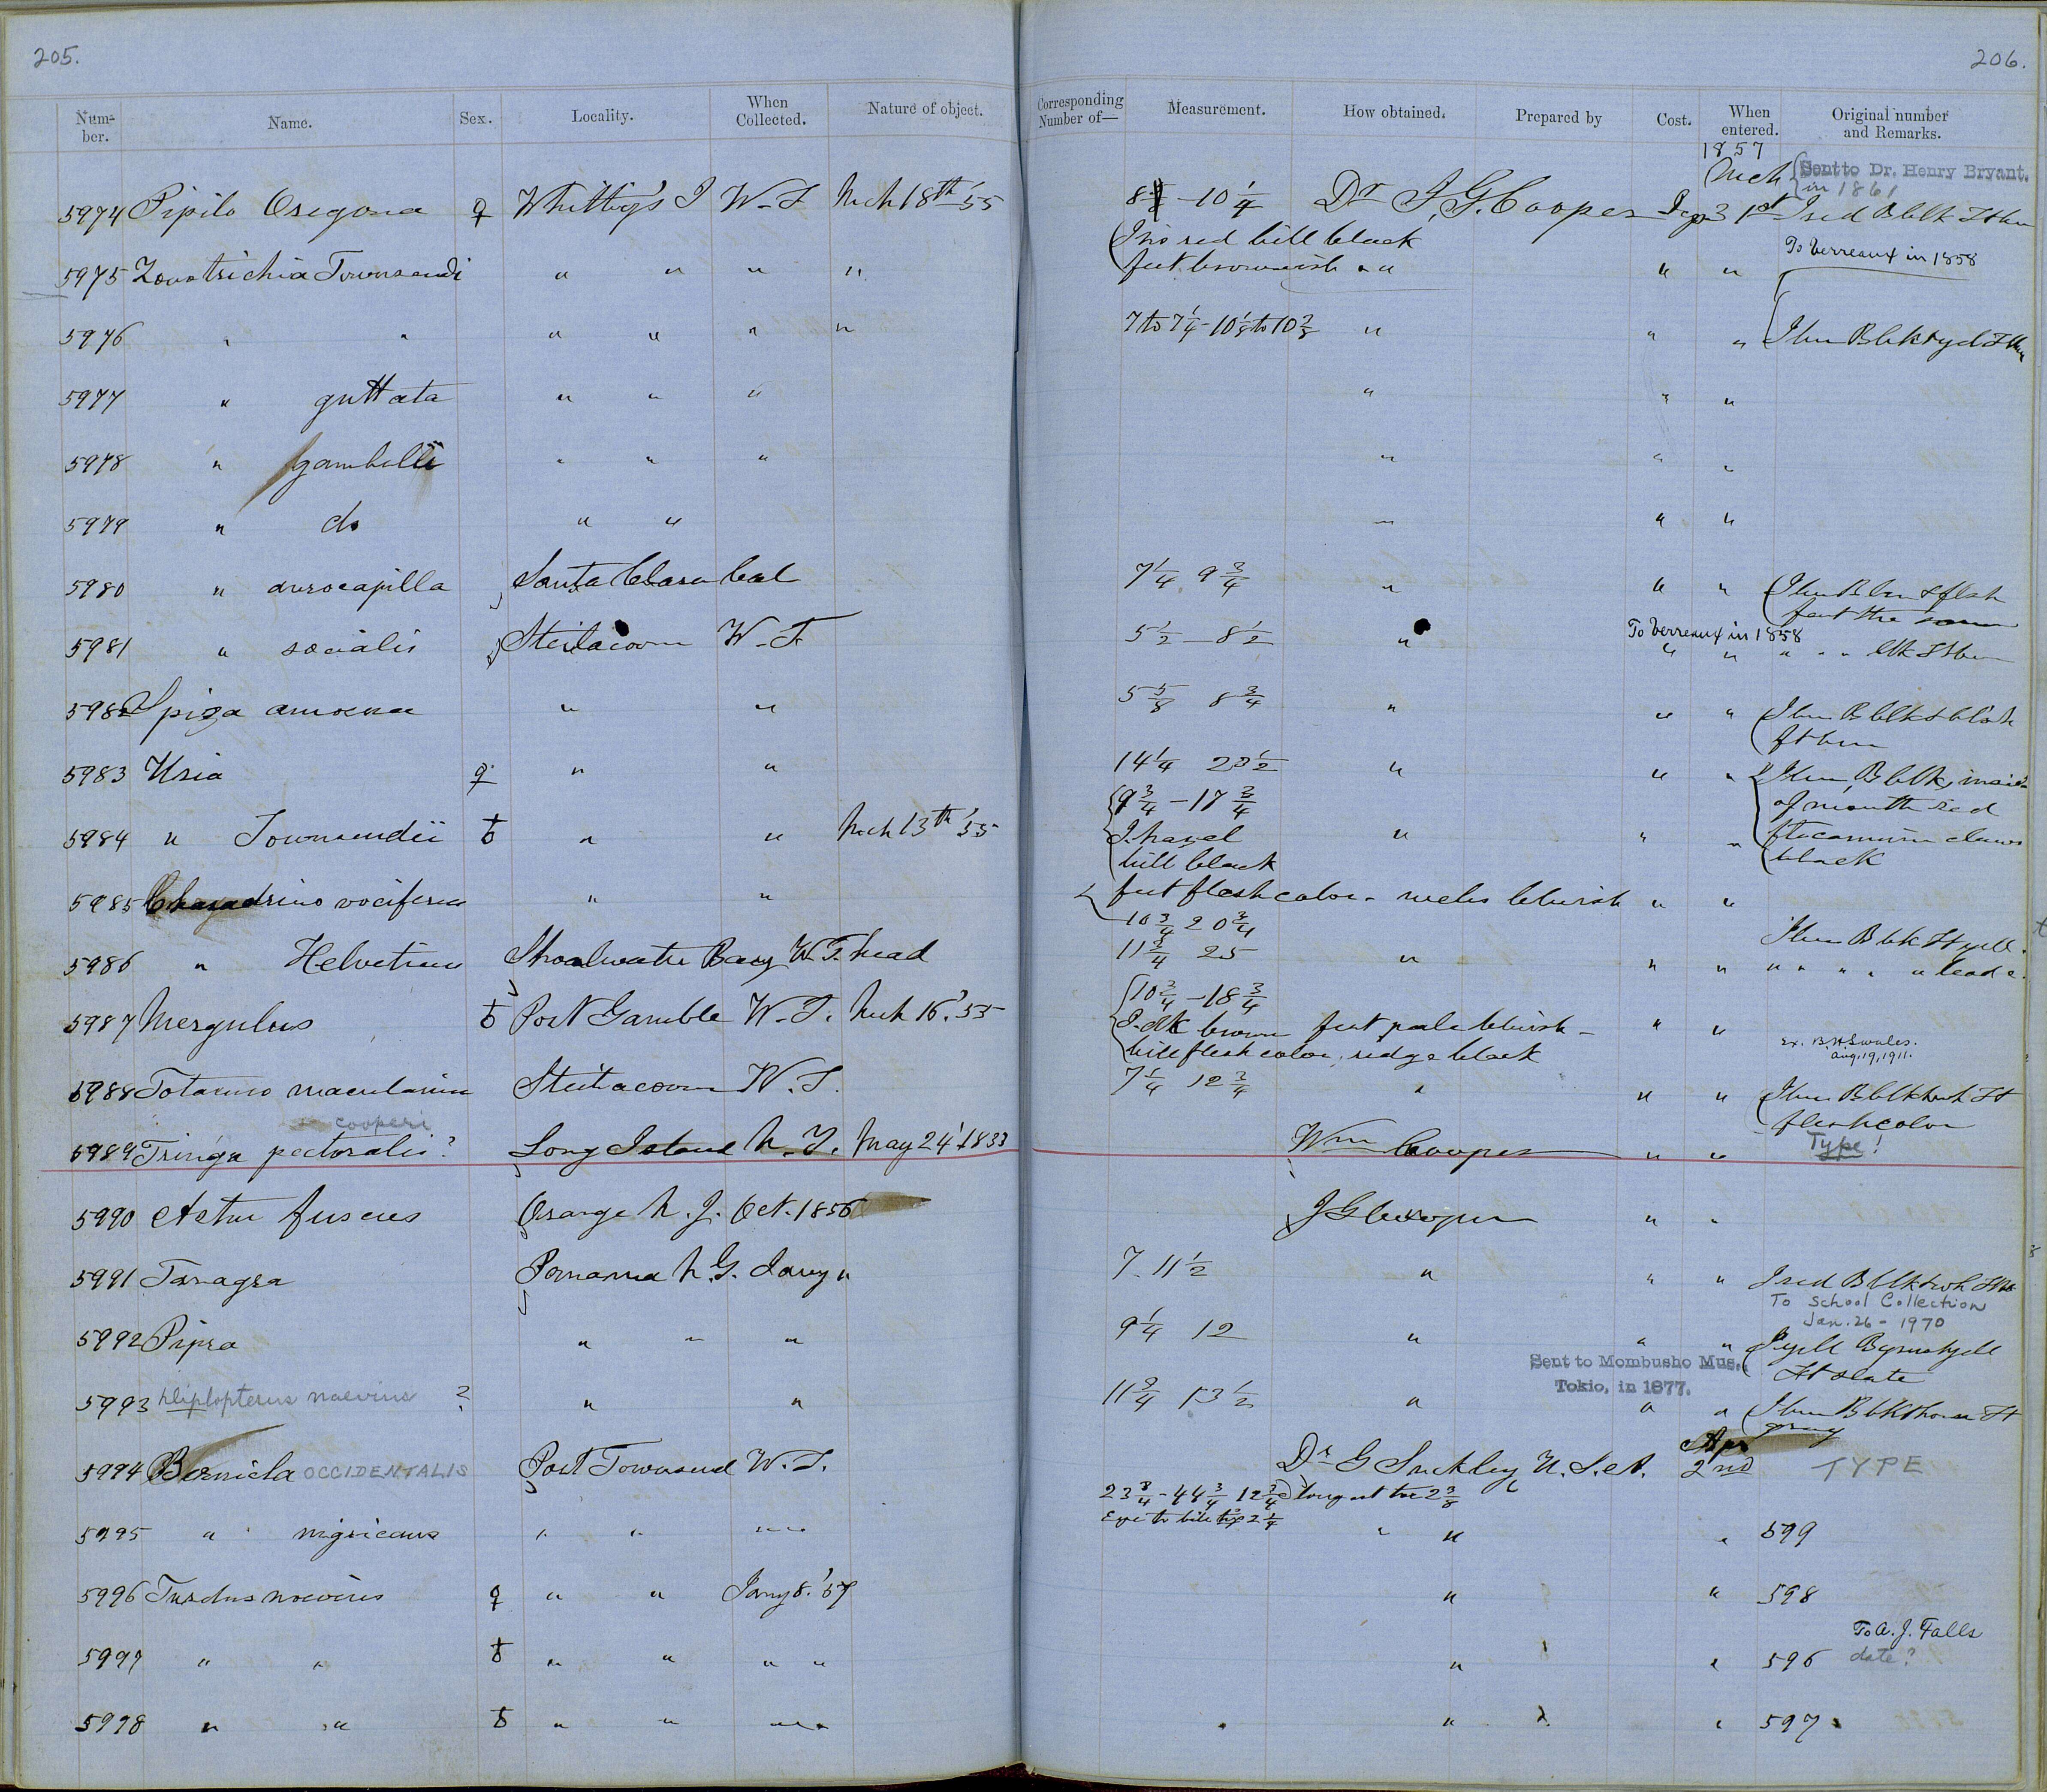 205.
206.
Num-ber. Name. Sex. Locality. When Collected. Nature of object. Corresponding Number of— Measurement. How obtained. Prepared by Cost. When entered. Original number and Remarks.
1857
Mch Sent to Dr. Henry Bryant. in 1861
5974 Pipilo Oregona ♀ Whitby's I W.T Mch 18th '55 - 10 1/4 Dr J.G. Cooper 31st I red B blk
Iris red bill black
feet brownish " "
To Verreaux in 1858
5975 Zonotrichia Townsendi " " " " " "
5976 " " " " " " 7 to 7 1/4 - 10 1/8 to 10 7/8 " " "
5977 " guttata " " " " " "
5978 " gambelli " " " " " "
5979 " do " " " " "
5980 " aurocapilla Santa Clara Cal 7 1/4 9 3/4 " " "
feet the same
5981 " socialis Steilacoom W.T. 5 1/2 - 8 1/2 " To Verreaux in 1858
" " " " "
5982 Spiza amoena " " 5 5/8 8 3/4 " " "
5983 Uria ♀ " " 14 1/4 23 1/2 " " "
of mouth red
9 3/4 - 17 3/4
5984 " Townsendii " " Mch 13th '55 I. hazel " " " claws
bill black black
5985 Charadrius vociferus " " feet flesh color - webs bluish " "
10 3/4 20 3/4
5986 " Helveticus Shoalwater Bay W.T. head 11 3/4 25 " " " " " " " "
10 3/4 - 18 3/4
5987 Mergulus Port Gamble W.T. Mch 16, '55 I. dk brown feet pale bluish - " "
bill flesh color, ridge black
Ex. B.H. Swales. Aug. 19, 1911.
5988 Totanus macularius Steilacoom W.T. 7 1/4 12 3/4 " " "
flesh color
cooperi
5989 Tringa pectoralis? Long Island N.Y. May 24, 1833 Wm Cooper " " Type!
5990 Astur fuscus Orange N.J. Oct. 1856 J G Cooper " "
5991 Tanagra Panama N.G. Jany " 7. 11 1/2 " " " I red B blk
To School Collection
Jan. 26 - 1970
5992 Pipra " " " 9 1/4 12 " " "
Ft slate
Sent to Mombusho Mus.
Tokio, in 1877.
5993 Diplopterus naevius ? " " 11 3/4 13 1/2 " " "
gray
5994 Bernicla OCCIDENTALIS Port Townsend W.T. Dr G Suckley U.S.A. Apr 2nd TYPE
23 3/4 - 44 3/4 12 3/4 longest toe 2 3/8
Eye to bill tip 2 1/4
5995 " nigricans " " " " " " 599
5996 Turdus naevius ♀ " " Jany 8. '57 " " 598
To A. J. Falls
date?
5997 " " " " " " " " 596
5998 " " " " " " " 597